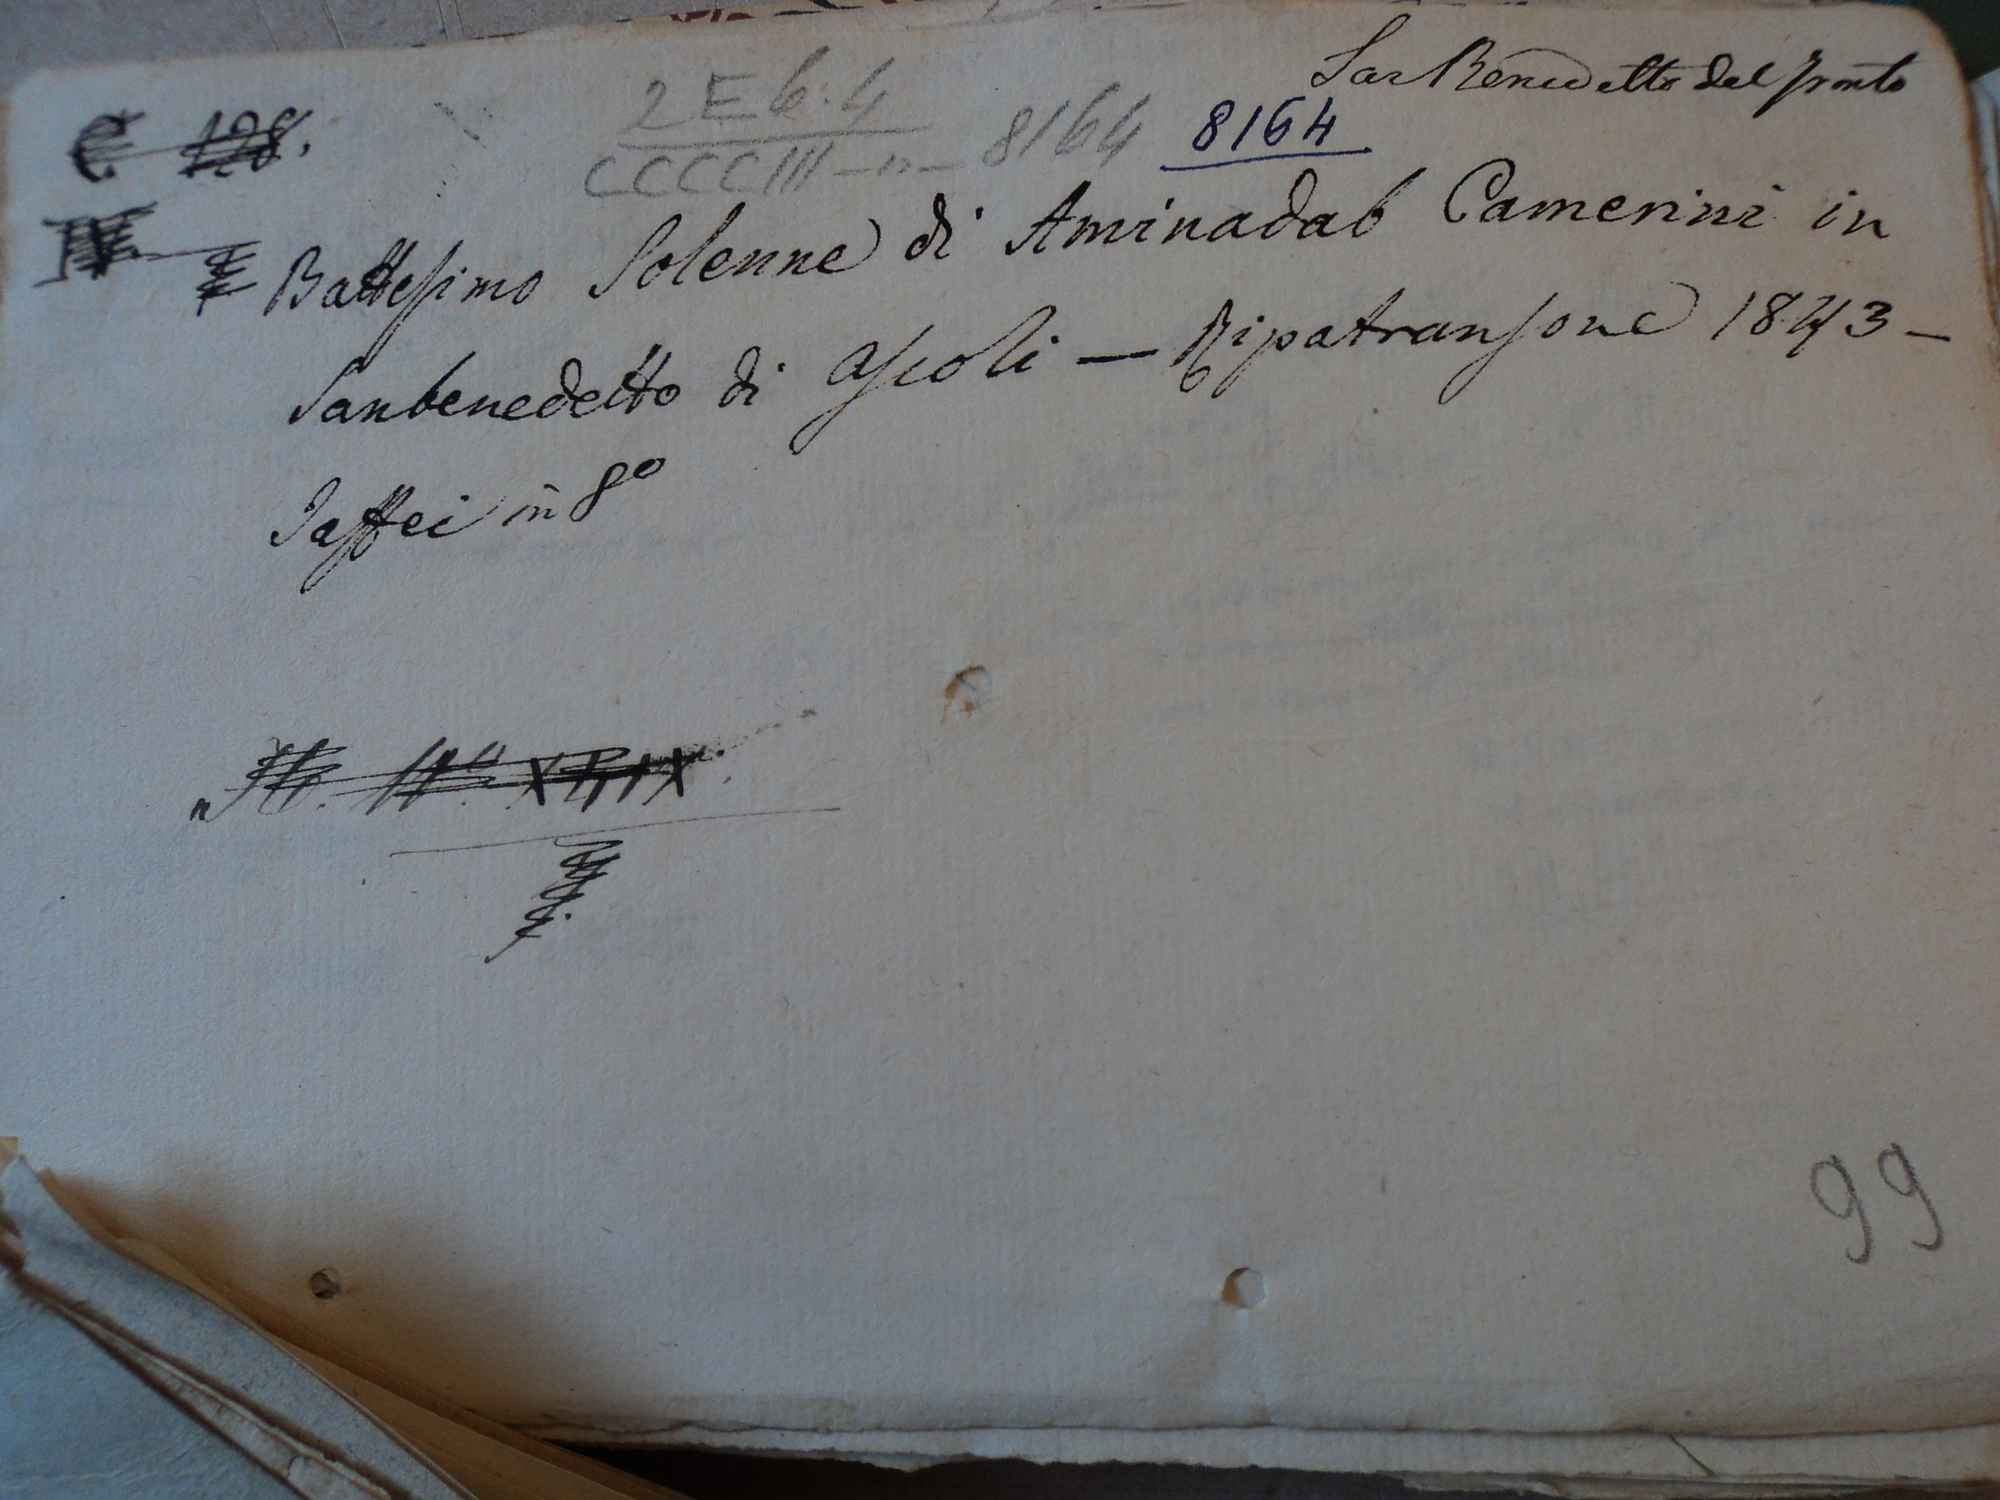 San Benedetto del Tronto
2 E 6. 4
CCCCIII — n — 8164 8164
C 128.
Battesimo Solenne di Aminadab Camerini in
Sanbenedetto di Ascoli — Ripatransone 1843 —
Jaffei in 8º
99